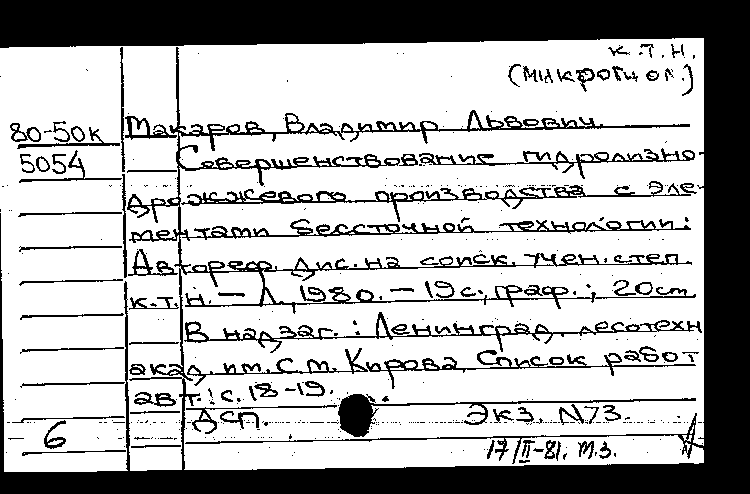 к.т.н.
(микробиол.)
80-50к Макаров, Владимир Львович.
5054 Совершенствование гидролизно-
дрожжевого производства с эле-
ментами бессточной технологии:
Автореф. дис. на соиск. учен. степ.
к.т.н. — Л., 1980. — 19 с., граф.; 20 см.
В надзаг.: Ленинград. лесотехн.
акад. им. С.М. Кирова. Список работ
авт.: с. 18-19.
ДСП. Экз. N73.
6 17/II-81. М.З.